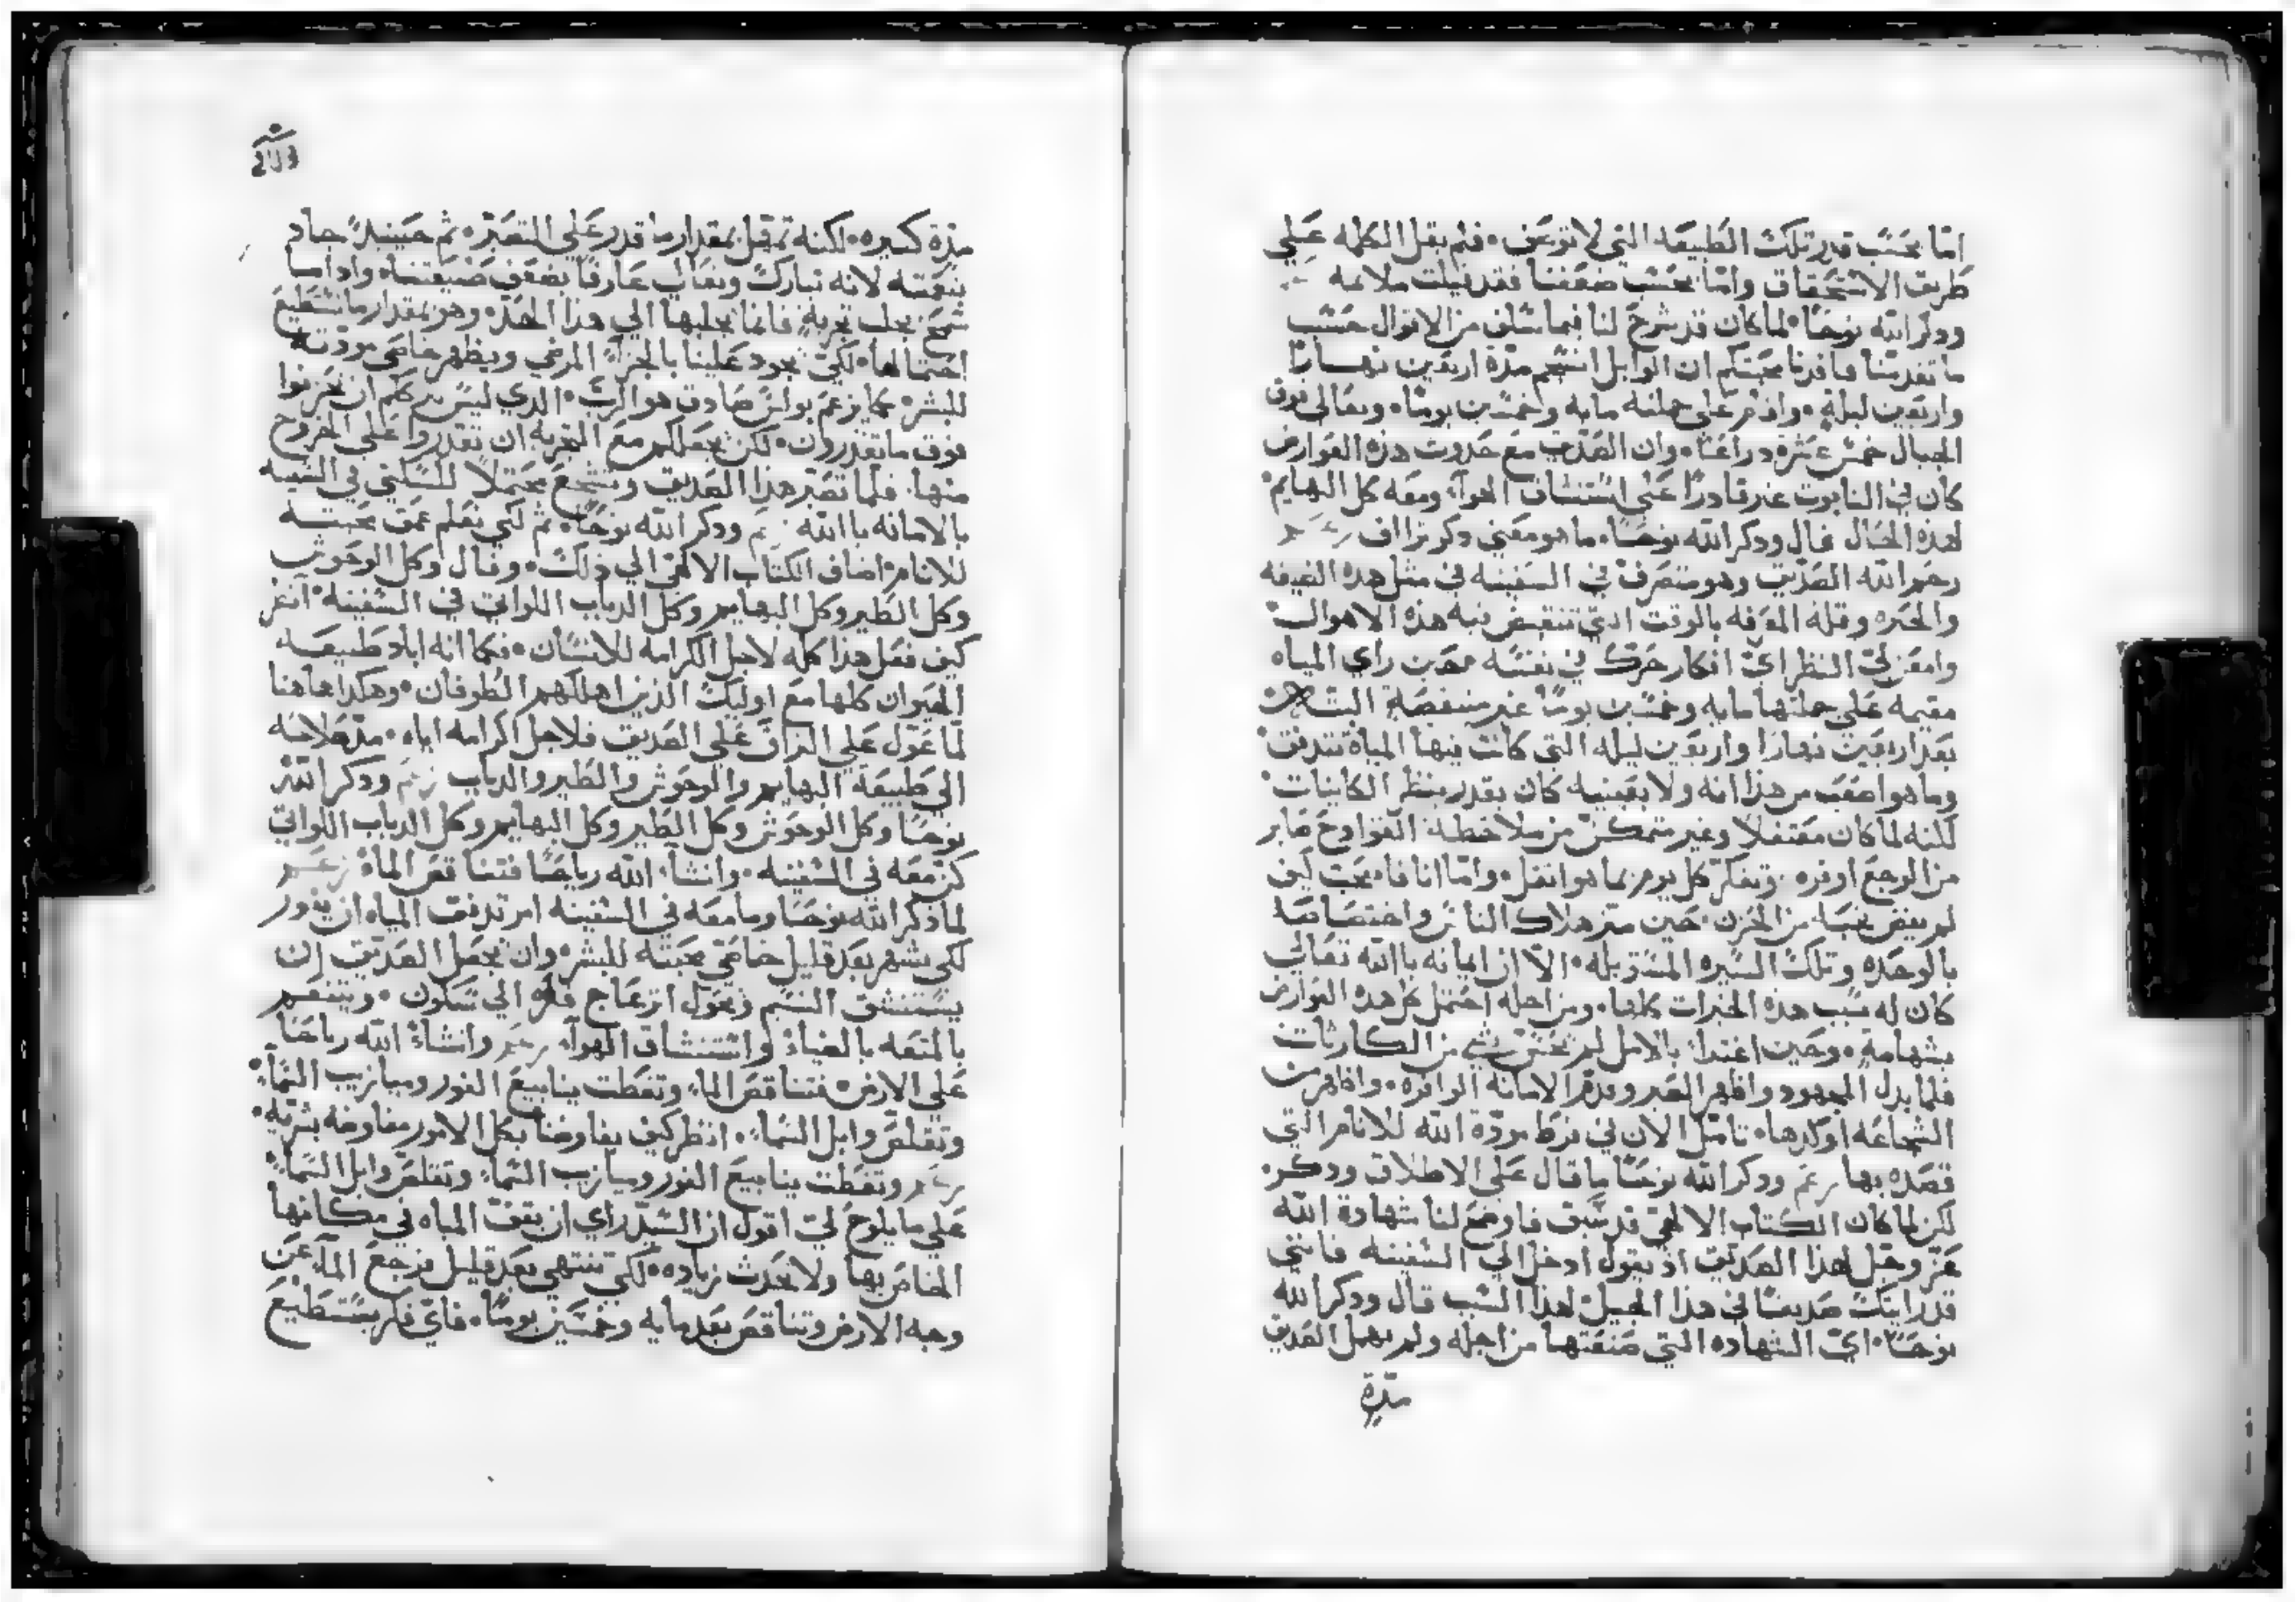 اما بحسب قدر تلك الطبيعه التي لا توصف فلم يقل الكلمه علي
طريق الاستحقاق واما بحسب ضعفنا فقد قيلت ملايمه
ودكر الله نوحا لما كان قد شرح لنا فيما سلف من الاقوال حسب
ما تقدمنا فافدنا محبتكم ان الوابل انسجم مدة اربعين نهارا
واربعين ليلة واقام علي جملته مايه وخمسين يوما وتعالي فوق
الجبال خمس عشرة دراعا وان الصديق مع حدوث هذه العوارض
كان في التابوت غير قادرا علي استنشاق الهواء ومعه كل البهايم
لهذه الحال قال ودكر الله نوحا ما هو معني دكر
رحم الله الصديق وهو متصرف في السفينه في مثل هده الضيقه
والحيره وقله المعرفه بالوقت ادي تنقضي فيه هذه الاهوال
وامعن لي النظر اي افكار حرك في نفسه حين راي المياه
مقيمه علي جملتها مايه وخمسين يوما غير منتقصة البته
بعد اربعين نهارا واربعين ليله التي كانت فيها المياة تتدفق
وما هو اصعب من هذا انه ولا بعينيه كان يقدر ينظر الكاينات
لكنه لما كان معتقلا وغير متمكن من ملاحظة الفوادح صابر
من الوجع اوفره وتفكر كل يوم بما هو اثقل واما انا فاعجب كيف
لم يقض نحبه من الحزن حين هلاك الناس واختصاصه
بالوحده وتلك السيره المستربله الا ان ايمانه باالله تعالي
كان له سبب هذه الخيرات كلها ومن اجله احتمل كل هده العوارض
بشهامة وحين اغتدا بالامل لم يحس بشي من الكارثات
فلما بدل المجهود واظهر الصبر وقدم الامانه الوافره واظهر من
الشجاعه اوكدها تامل الان لي فرط مودة الله للانام التي
قصده بها ودكر الله نوحا ما قال علي الاطلاق ودكر
لكن لما كان الكتاب الالهي قد سبق فاوضح لنا شهادة الله
عز وجل لهذا الصديق اذ يقول ادخل الي السفينه فانني
قد رايتك صديقا في هذا الجيل لهذا السبب قال ودكر الله
نوحا اي الشهاده التي صنعتها من اجله ولم يهمل الصديق
مدة
مدة كبيره لكنه تمهل بمقدار ما قدر علي التصبر ثم حينيد جاد
بنعمته لانه تبارك وتعالي عارفا بضعف ضيعتنا وادا ما
سمح بجلب تجربة فانما يجلبها الي هذا الحد وهو بمقدار ما نستطيع
احتمالها لكي يجود علينا بالجزاء المرضي ويظهر خاصي مودته
للبشر كما يزعم بولس صادق هو الرب الدي ليس يترككم ان تحزنوا
فوق ما تقدرون لكن يجعل لكم مع التجربه ان تقدروا علي الخروج
منها فلما تصبر هدا الصديق وتشجع محتملا للسكني في السفينه
بالامانه باالله ودكر الله نوحا ثم لكي نعلم عمق محبته
للانام اضاف الكتاب الالهي الي ذلك وقال وكل الوحوش
وكل الطير وكل البهايم وكل الدباب اللواتي في السفينه انظر
كيف فعل هذا كله لاجل الكرامه للانسان فكما انه اباد طبيعه
الحيوان كلها مع اوليك الذين اهلكهم الطوفان وهكدا هاهنا
لما عول علي التراف علي الصديق فلاجل اكرامه اياه مد صلاحه
الي طبيعة البهايم والوحوش والطير والدباب ودكر الله
نوحا وكل الوحوش وكل الطير وكل البهايم وكل الدباب اللواتي
كن معه في السفينه وانشا الله رياحا فتناقص الماء
لما ذكر الله نوحا وما معه في السفينه امر تدفق المياه ان
لكي يشهر بعد قليل خاصي محبته للبشر وان يجعل الصديق ان
يستنشق النسيم ويحول ازعاج فكره الي سكون ويتنعم
بالمتعه بالضياء واستنشاق الهواء وانشاء الله رياحا
علي الارض فتناقص الماء وتغطت ينابيع الغور وميازيب السماء
وتقلص وابل السماء انظر كيف يفاوضنا بكل الامور مفاوضه بشريه
وتغطت ينابيع الغور وميازيب السماء وتقلص وابل السماء
علي ما يلوح لي اقول ان السيد راي ان تقف المياه في مكانها
الخاص بها ولا يحدث زياده لكي تنتهي بعد قليل فرجع الماء عن
وجه الارض وتناقص بعد مايه وخمسين يوما فاي فكر يستطيع